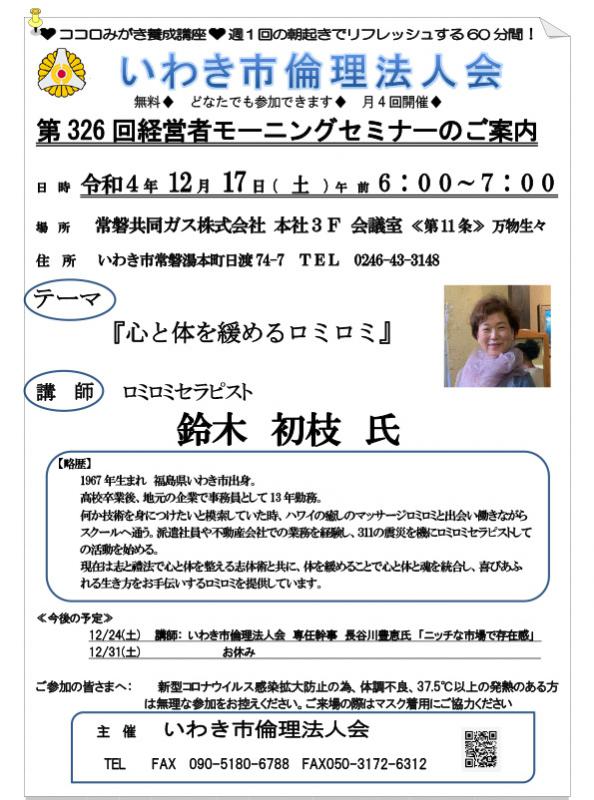 ♥ココロみがき養成講座♥週1回の朝起きでリフレッシュする60分間！
いわき市倫理法人会
無料◆　どなたでも参加できます◆　月4回開催◆
第326回経営者モーニングセミナーのご案内
日 時　令和4年 12月 17日( 土 )午 前 6：00～7：00
場 所　常磐共同ガス株式会社 本社3Ｆ 会議室 ≪第11条≫ 万物生々
住 所　いわき市常磐湯本町日渡74-7　ＴＥＬ　0246-43-3148
テーマ
『心と体を緩めるロミロミ』
講 師　ロミロミセラピスト
鈴木 初枝 氏
【略歴】
1967年生まれ　福島県いわき市出身。
高校卒業後、地元の企業で事務員として13年勤務。
何か技術を身につけたいと模索していた時、ハワイの癒しのマッサージロミロミと出会い働きながら
スクールへ通う。派遣社員や不動産会社での業務を経験し、311の震災を機にロミロミセラピストして
の活動を始める。
現在は志と禮法で心と体を整える志体術と共に、体を緩めることで心と体と魂を統合し、喜びあふ
れる生き方をお手伝いするロミロミを提供しています。
≪今後の予定≫
12/24(土)　講師: いわき市倫理法人会　専任幹事　長谷川豊恵氏「ニッチな市場で存在感」
12/31(土)　お休み
ご参加の皆さまへ:　新型コロナウイルス感染拡大防止の為、体調不良、37.5℃以上の発熱のある方
は無理な参加をお控えください。ご来場の際はマスク着用にご協力ください
主 催　いわき市倫理法人会
TEL　FAX　090-5180-6788　FAX050-3172-6312